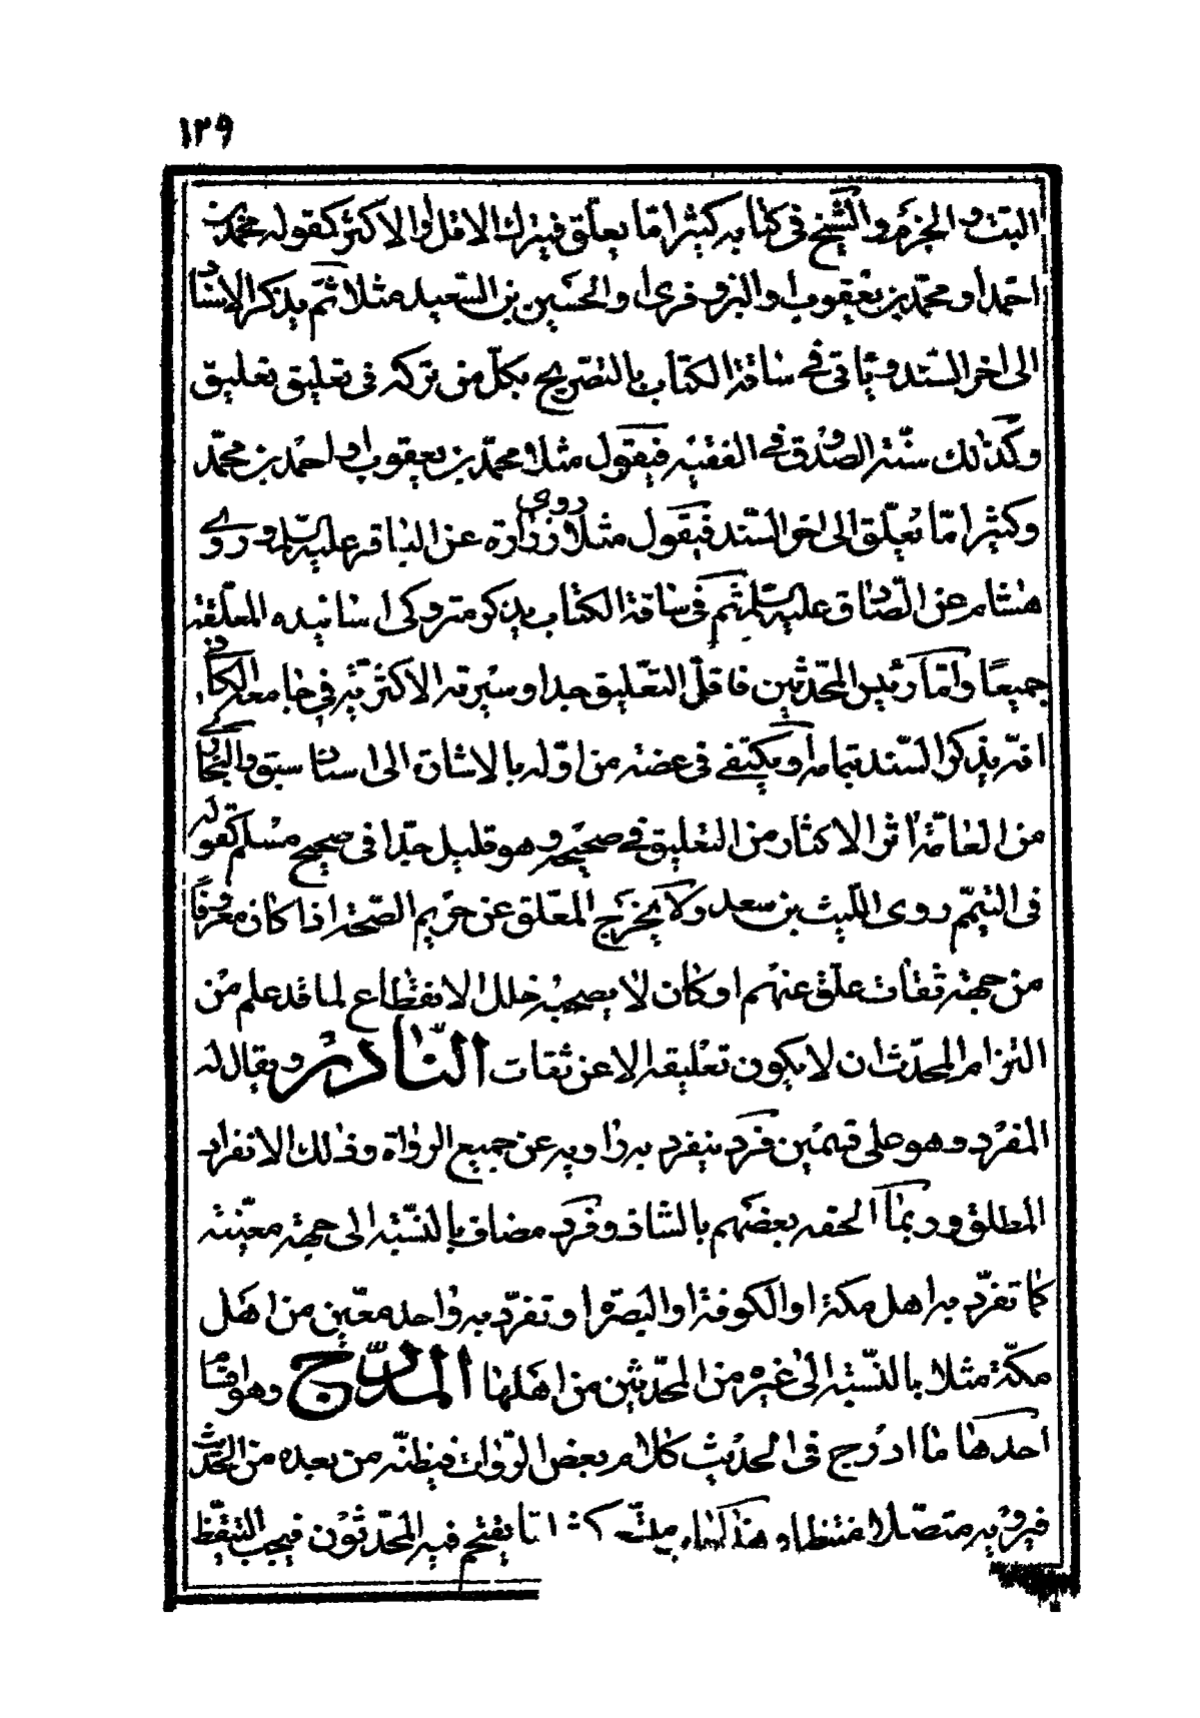 ١٢٩
البت و الجزم و الشيخ فى كتابيه كثيرا ما يعلق فيترك الاقل او الاكثر كقوله محمد بن
احمد او محمد بن يعقوب او البزوفرى او الحسين بن السعيد مثلا ثم يذكر الاسناد
الى اخر السند و ياتى فى ساقة الكتاب بالتصريح بكل من تركه فى تعليق تعليق
و كذلك سنة الصدوق فى الفقيه فيقول مثلا محمد بن يعقوب او احمد بن محمد
و كثيرا ما يعلق الى اخر السند فيقول مثلا روى زرارة عن الباقر عليه السلم و روى
هشام عن الصادق عليه السلم ثم فى ساقة الكتاب يذكر متروكى اسانيده المعلقة
جميعا و اما رئيس المحدثين فاقل التعليق جدا و سيرته الاكثرية فى جامعه الكافى
انه يذكر السند بتمامه او يكتفى فى عضته من اوله بالاشارة الى اسناد سبق و البخارى
من العامة اثر الاكثار من التعليق فى صحيحه و هو قليل جدا فى صحيح مسلم كقوله
فى التيمم روى الليث بن سعد و لا يخرج المعلق عن حريم الصحة اذا كان معروفا
من جهة ثقات علق عنهم او كان لا يصحبه خلل الانقطاع لما قد علم من
التزام المحدث ان لا يكون تعليقه الا عن ثقات النادر و يقال له
المفرد و هو على قسمين فرد ينفرد به راويه عن جميع الرواة و ذلك الانفراد
المطلق و ربما الحقه بعضهم بالشاذ و فرد مضاف بالنسبة الى جهة معينة
كما تفرد به اهل مكة او الكوفة او البصرة او تفرد به واحد معين من اهل
مكة مثلا بالنسبة الى غيره من المحدثين من اهلها المدرج و هو اقسام
احدها ما ادرج فى الحديث كلام بعض الروات فيظنه من بعده من الحديث
فيرويه متصلا منتظما و هذا الباب كثيرا ما يقتحم فيه المحدثون فيجب التيقظ